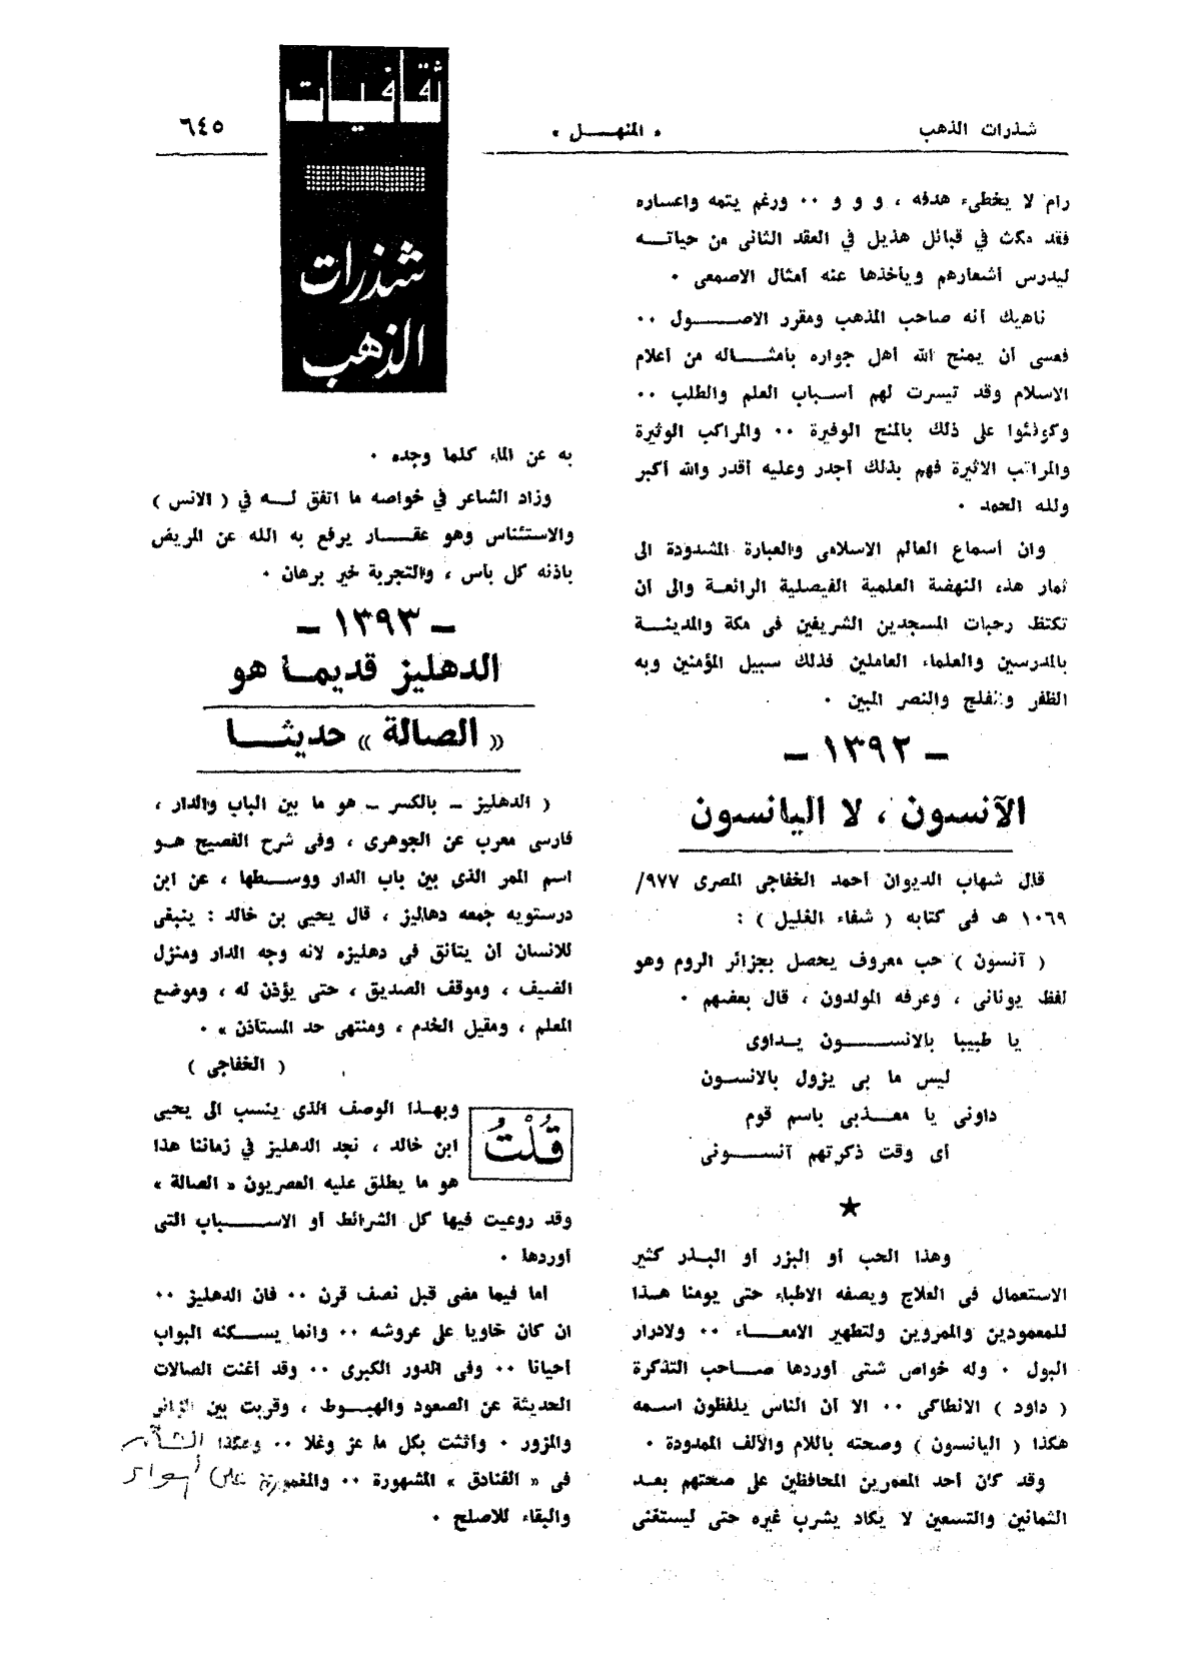 شذرات الذهب
« المنهـــل »
٦٤٥
ثقافيات
شذرات
الذهب
رام لا يخطىء هدفه ، و و و ٠٠ ورغم يتمه واعساره
فقد مكث في قبائل هذيل في العقد الثانى من حياتـــه
ليدرس أشعارهم ويأخذها عنه أمثال الاصمعى ٠
ناهيك أنه صاحب المذهب ومقرر الاصـــــول ٠٠
فعسى أن يمنح الله أهل جواره بأمثـــاله من أعلام
الاسلام وقد تيسرت لهم أسـباب العلم والطلب ٠٠
وكوفئوا على ذلك بالمنح الوفيرة ٠٠ والمراكب الوثيرة
والمراتب الاثيرة فهم بذلك أجدر وعليه أقدر والله أكبر
ولله الحمد ٠
وان أسماع العالم الاسلامى والعبارة المشدودة الى
ثمار هذه النهضة العلمية الفيصلية الرائعـة والى أن
تكتظ رحبات المسجدين الشريفين فى مكة والمدينـــة
بالمدرسين والعلماء العاملين فذلك سبيل المؤمنين وبه
الظفر والفلج والنصر المبين ٠
— ١٣٩٢ —
الآنسون ، لا اليانسون
قال شهاب الديوان أحمد الخفاجي المصرى ٩٧٧/
١٠٦٩ هـ فى كتابه ( شفاء الغليل ) :
( آنسون ) حب معروف يحصل بجزائر الروم وهو
لفظ يونانى ، وعرفه المولدون ، قال بعضهم ٠
يا طبيبا بالانســـــون يــداوى
ليس ما بى يزول بالانســون
داونى يا معـــذبى باسم قوم
أى وقت ذكرتهم آنســـــونى
★
وهذا الحب أو البزر أو البـذر كثير
الاستعمال فى العلاج ويصفه الاطباء حتى يومنا هـــذا
للمعمودين والممرورين ولتطهير الامعـــاء ٠٠ ولادرار
البول ٠ وله خواص شتى أوردها صــاحب التذكرة
( داود ) الانطاكى ٠٠ الا أن الناس يلفظون اسـمه
هكذا ( اليانسون ) وصحته باللام والألف الممدودة ٠
وقد كان أحد المعمرين المحافظين على صحتهم بعـد
الثمانين والتسعين لا يكاد يشرب غيره حتى ليستغنى
به عن الماء كلما وجده ٠
وزاد الشاعر في خواصه ما اتفق لـــه في ( الانس )
والاستئناس وهو عقـــار يرفع به الله عن المريض
باذنه كل بأس ، والتجربة خير برهان ٠
— ١٣٩٣ —
الدهليز قديمــا هو
« الصالة » حديثـــا
( الدهليز — بالكسر — هو ما بين الباب والدار ،
فارسى معرب عن الجوهرى ، وفى شرح الفصيح هــو
اسم الممر الذى بين باب الدار ووسـطها ، عن ابن
درستويه جمعه دهاليز ، قال يحيى بن خالد : ينبغى
للانسان أن يتانق فى دهليزه لانه وجه الدار ومنزل
الضيف ، وموقف الصديق ، حتى يؤذن له ، وموضع
المعلم ، ومقيل الخدم ، ومنتهى حد المستاذن » ٠
( الخفاجى )
قُلْتُ
وبهـذا الوصف الذى ينسب الى يحيى
ابن خالد ، نجد الدهليز في زماننا هذا
هو ما يطلق عليه العصريون « الصالة »
وقد روعيت فيها كل الشرائط أو الاســـباب التى
أوردها ٠
اما فيما مضى قبل نصف قرن ٠٠ فان الدهليز ٠٠
ان كان خاويا على عروشه ٠٠ وانما يســكنه البواب
أحيانا ٠٠ وفى الدور الكبرى ٠٠ وقد أغنت الصالات
الحديثة عن الصعود والهبـوط ، وقربت بين الزائر
والمزور ٠ وأثثت بكل ما عز وغلا ٠٠ وهكذا
فى « الفنادق » المشهورة ٠٠ على
والبقاء للاصلح ٠